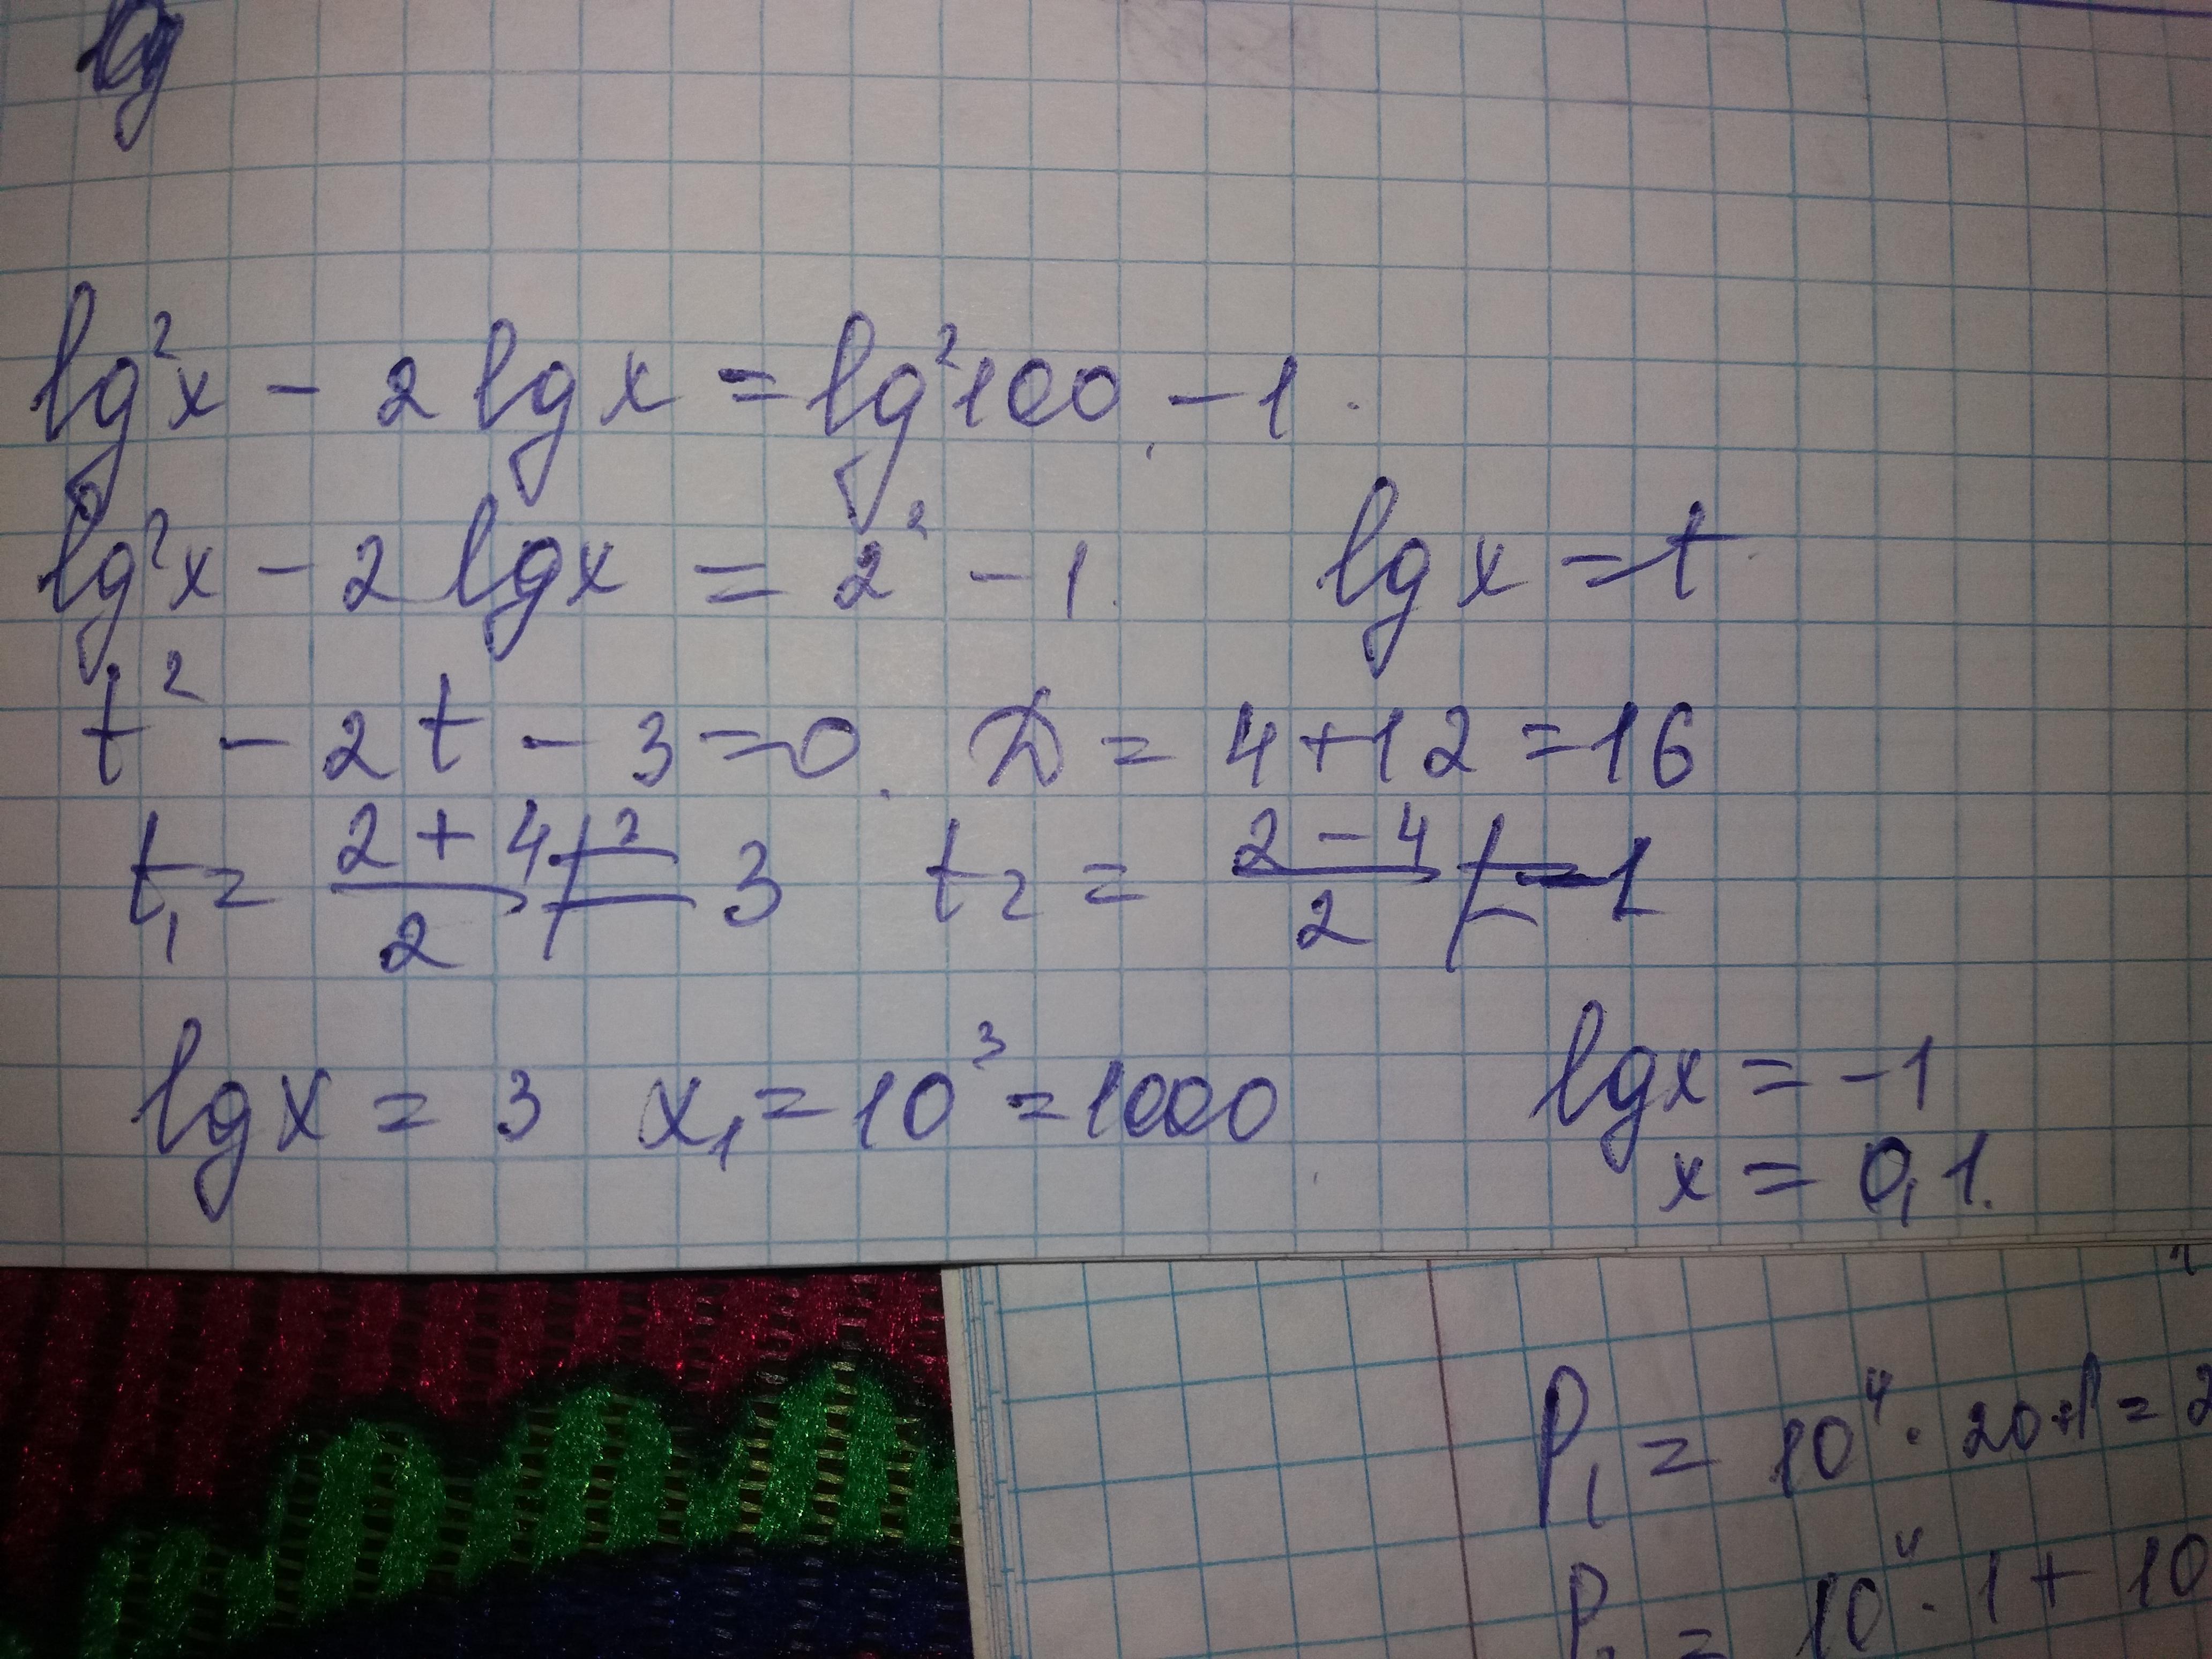 lg
lg²x - 2 lg x = lg²100 - 1.
lg²x - 2 lg x = 2² - 1. lg x = t
t² - 2t - 3 = 0. D = 4 + 12 = 16
t₁ = (2 + 4)/2 = 3 t₂ = (2 - 4)/2 = -1
lg x = 3 x₁ = 10³ = 1000 lg x = -1
x = 0,1.
P₁ = 10⁴ · 20 + 1 = 2
10⁴ · 1 + 10